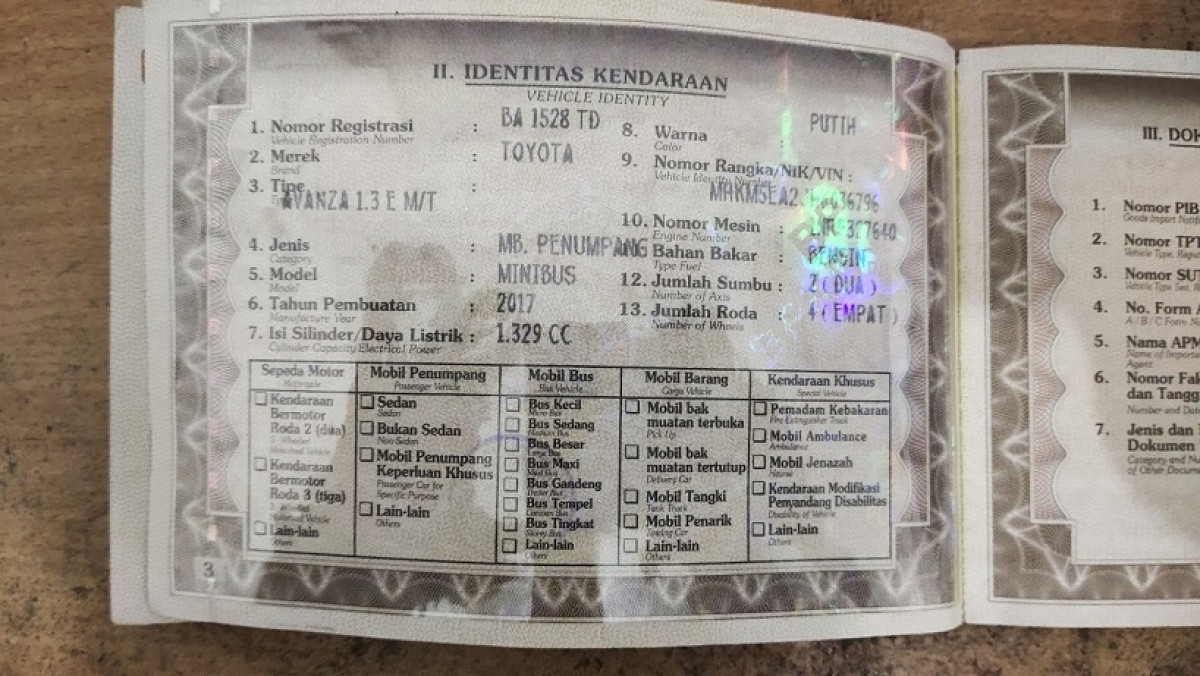 II. IDENTITAS KENDARAAN
VEHICLE IDENTITY
1. Nomor Registrasi : BA 1528 TD
Vehicle Registration Number
2. Merek : TOYOTA
Brand
3. Tipe :
AVANZA 1.3 E M/T
4. Jenis : MB. PENUMPANG
Category
5. Model : MINIBUS
Model
6. Tahun Pembuatan : 2017
Manufacture Year
7. Isi Silinder/Daya Listrik : 1.329 CC
Cylinder Capacity/Electrical Power
8. Warna : PUTIH
Color
9. Nomor Rangka/NIK/VIN :
Vehicle Identity Number
10. Nomor Mesin :
Engine Number
Bahan Bakar : BENSIN
Type Fuel
12. Jumlah Sumbu : 2 ( DUA )
Number of Axis
13. Jumlah Roda : 4 ( EMPAT )
Number of Wheels
Sepeda Motor
Motorcycle
Kendaraan
Bermotor
Roda 2 (dua)
Kendaraan
Bermotor
Roda 3 (tiga)
Lain-lain
Others
Mobil Penumpang
Passenger Vehicle
Sedan
Sedan
Bukan Sedan
Non Sedan
Mobil Penumpang
Keperluan Khusus
Passenger Car for
Specific Purpose
Lain-lain
Others
Mobil Bus
Bus Vehicle
Bus Kecil
Micro Bus
Bus Sedang
Medium Bus
Bus Besar
Large Bus
Bus Maxi
Maxi Bus
Bus Gandeng
Bus Tempel
Bus Tingkat
Lain-lain
Others
Mobil Barang
Cargo Vehicle
Mobil bak
muatan terbuka
Pick Up
Mobil bak
muatan tertutup
Delivery Car
Mobil Tangki
Tank Truck
Mobil Penarik
Towing Car
Lain-lain
Others
Kendaraan Khusus
Special Vehicle
Pemadam Kebakaran
Fire Extinguisher Truck
Mobil Ambulance
Ambulance
Mobil Jenazah
Hearse
Kendaraan Modifikasi
Penyandang Disabilitas
Disability of Vehicle
Lain-lain
Others
3
III. DOK
1. Nomor PIB
2. Nomor TPT
3. Nomor SUT
4. No. Form A
5. Nama APM
Agent
6. Nomor Fak
dan Tangg
Number and Da
7. Jenis dan
Dokumen
Category and Nu
of Other Docum